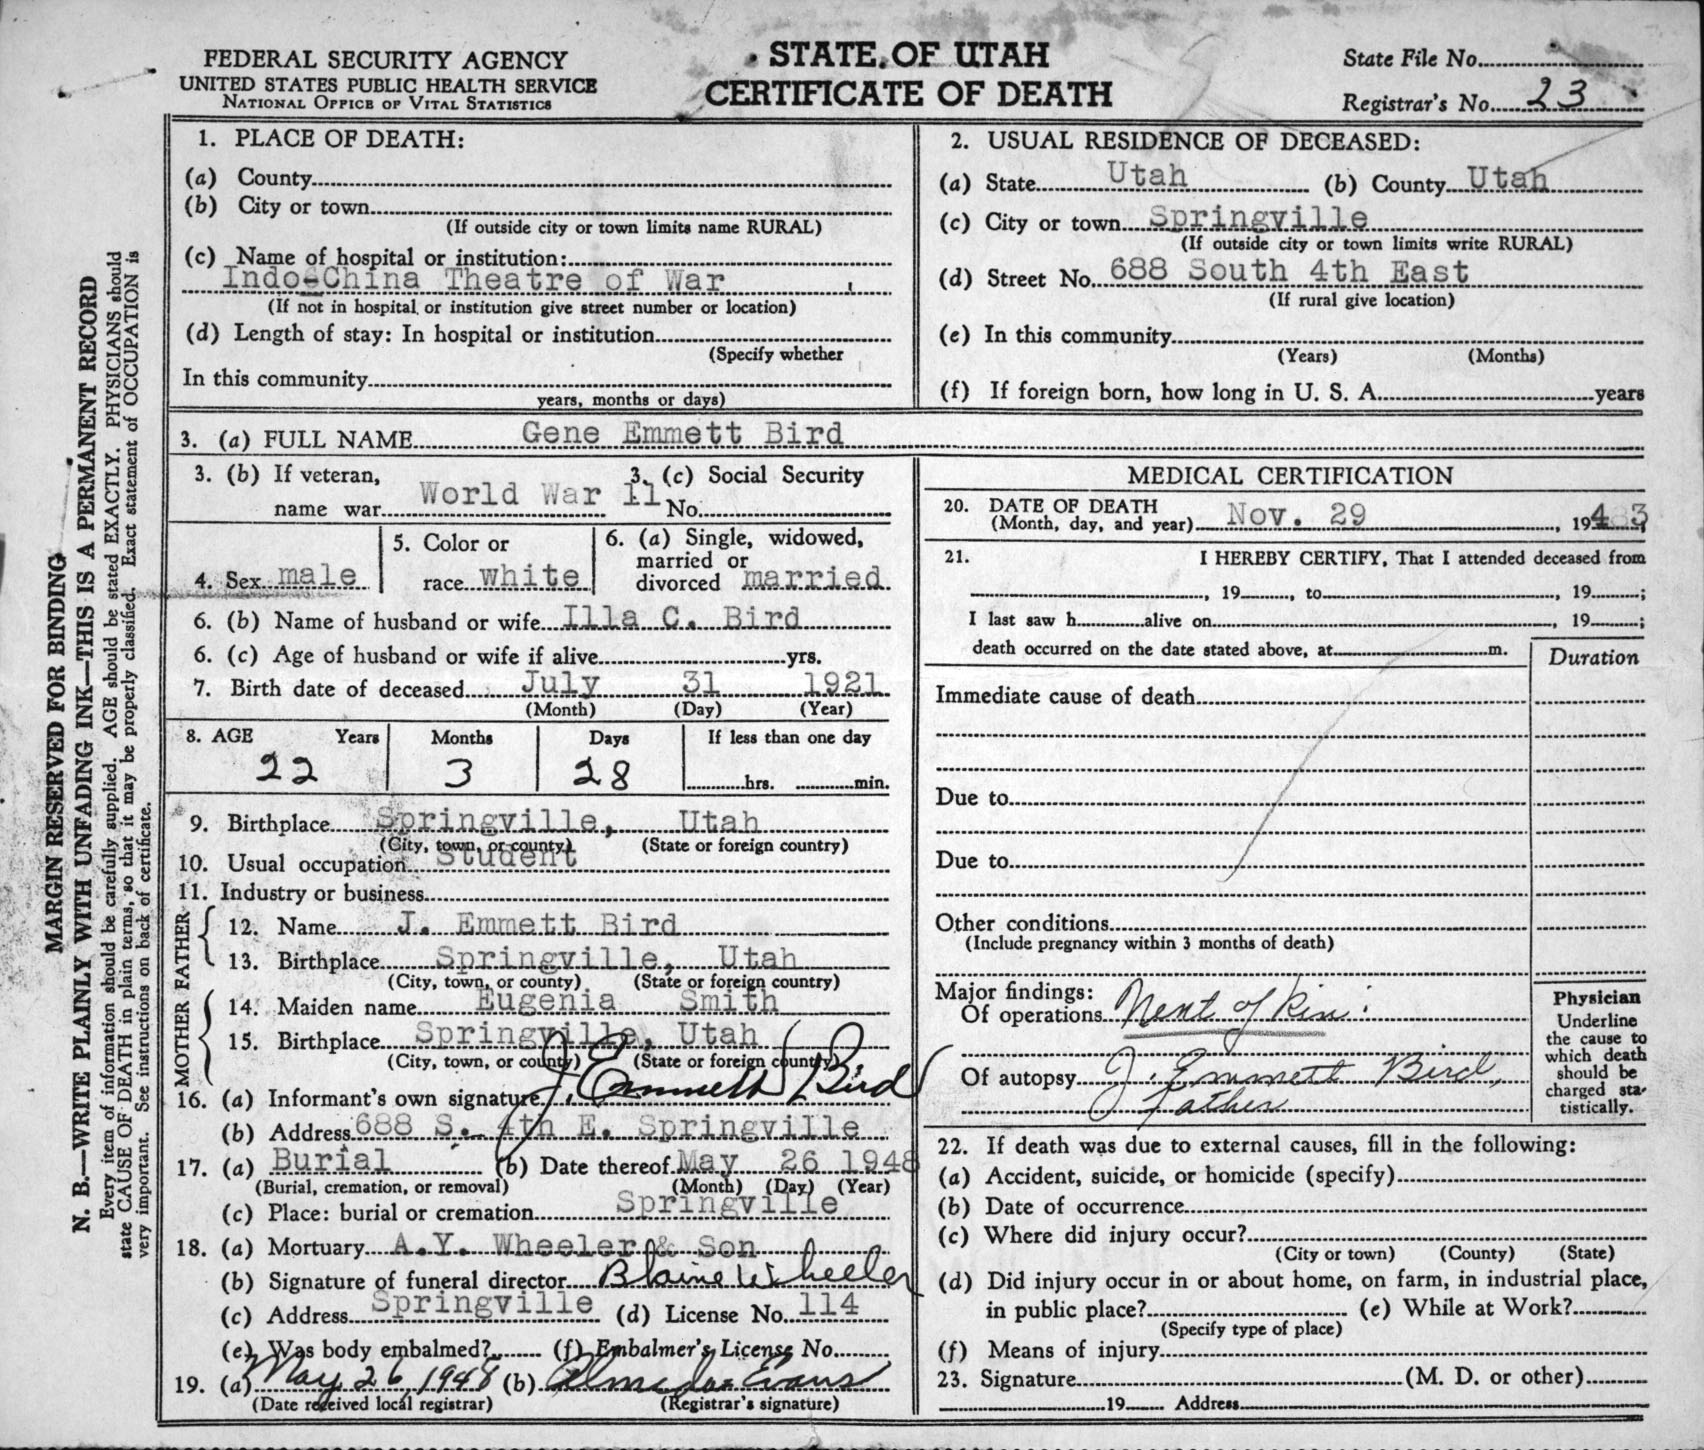 FEDERAL SECURITY AGENCY
UNITED STATES PUBLIC HEALTH SERVICE
NATIONAL OFFICE OF VITAL STATISTICS
STATE OF UTAH
CERTIFICATE OF DEATH
State File No.
Registrar's No. 23
MARGIN RESERVED FOR BINDING
N. B.—WRITE PLAINLY WITH UNFADING INK—THIS IS A PERMANENT RECORD
Every item of information should be carefully supplied. AGE should be stated EXACTLY. PHYSICIANS should
state CAUSE OF DEATH in plain terms, so that it may be properly classified. Exact statement of OCCUPATION is
very important. See instructions on back of certificate.
1. PLACE OF DEATH:
(a) County
(b) City or town
(If outside city or town limits name RURAL)
(c) Name of hospital or institution:
Indo-China Theatre of War
(If not in hospital or institution give street number or location)
(d) Length of stay: In hospital or institution
(Specify whether
In this community
years, months or days)
2. USUAL RESIDENCE OF DECEASED:
(a) State Utah (b) County Utah
(c) City or town Springville
(If outside city or town limits write RURAL)
(d) Street No. 688 South 4th East
(If rural give location)
(e) In this community
(Years) (Months)
(f) If foreign born, how long in U. S. A. years
3. (a) FULL NAME Gene Emmett Bird
3. (b) If veteran, 3. (c) Social Security
name war World War 11 No.
4. Sex male
5. Color or
race white
6. (a) Single, widowed,
married or
divorced married
6. (b) Name of husband or wife Illa C. Bird
6. (c) Age of husband or wife if alive yrs.
7. Birth date of deceased July 31 1921
(Month) (Day) (Year)
8. AGE Years Months Days If less than one day
22 3 28 hrs. min.
9. Birthplace Springville, Utah
(City, town, or county) (State or foreign country)
10. Usual occupation Student
11. Industry or business
FATHER
12. Name J. Emmett Bird
13. Birthplace Springville, Utah
(City, town, or county) (State or foreign country)
MOTHER
14. Maiden name Eugenia Smith
15. Birthplace Springville, Utah
(City, town, or county) (State or foreign country)
16. (a) Informant's own signature J. Emmett Bird
(b) Address 688 S. 4th E. Springville
17. (a) Burial (b) Date thereof May 26 1948
(Burial, cremation, or removal) (Month) (Day) (Year)
(c) Place: burial or cremation Springville
18. (a) Mortuary A.Y. Wheeler & Son
(b) Signature of funeral director Blaine Wheeler
(c) Address Springville (d) License No. 114
(e) Was body embalmed? (f) Embalmer's License No.
19. (a) May 26, 1948 (b) Evans
(Date received local registrar) (Registrar's signature)
MEDICAL CERTIFICATION
20. DATE OF DEATH
(Month, day, and year) Nov. 29, 1943
21. I HEREBY CERTIFY, That I attended deceased from
, 19 , to , 19 ;
I last saw h alive on , 19 ;
death occurred on the date stated above, at m.
Duration
Immediate cause of death
Due to
Due to
Other conditions
(Include pregnancy within 3 months of death)
Major findings:
Of operations Next of Kin:
Of autopsy J. Emmett Bird,
Father
Physician
Underline
the cause to
which death
should be
charged sta-
tistically.
22. If death was due to external causes, fill in the following:
(a) Accident, suicide, or homicide (specify)
(b) Date of occurrence
(c) Where did injury occur?
(City or town) (County) (State)
(d) Did injury occur in or about home, on farm, in industrial place,
in public place? (e) While at Work?
(Specify type of place)
(f) Means of injury
23. Signature (M. D. or other)
19 Address